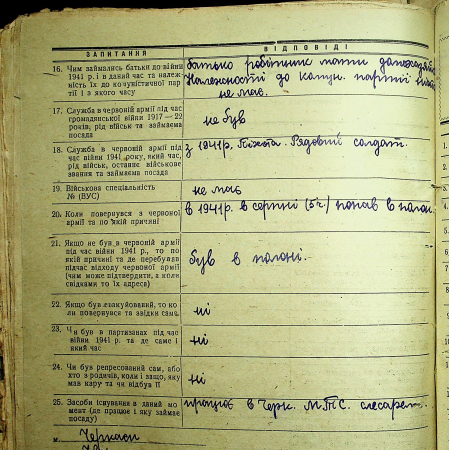 ЗАПИТАННЯ ВІДПОВІДІ
16. Чим займались батьки до війни батько робітник мати домохазяйка
1941 р. і в даний час та належ- Належності до комун. партії
ність їх до комуністичної пар- не має.
тії і з якого часу
17. Служба в червоній армії під час не був
громадянської війни 1917—22
років, рід військ та займаєма
посада
18. Служба в червоній армії під з 1941р. Піхота. Рядовий солдат.
час війни 1941 року, який час,
рід військ, останнє військове
звання та займаєма посада
19. Військова спеціальність не має
№ (ВУС)
20. Коли повернувся з червоної в 1941р. в серпні попав в полон.
армії та по якій причині
21. Якщо не був в червоній армії був в полоні.
під час війни 1941 р., то по
якій причині та де перебував
підчас відходу червоної армії
(чим може підтвердити, а коли
свідками то їх адреса)
22. Якщо був евакуйований, то ко- ні
ли повернувся та звідки саме
23. Чи був в партизанах під час ні
війни 1941 р. та де саме і
який час
24. Чи був репресований сам, або ні
хто з родичів, коли і защо, яку
мав кару та чи відбув її
25. Засоби існування в даний мо- працює в Черк. М.Т.С. слюсарем.
мент (де працює і яку займає
посаду)
м. Черкаси